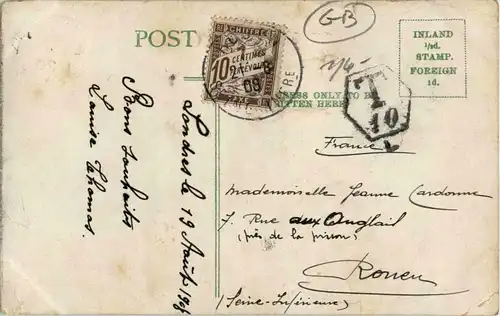 POST
GB
INLAND
½d.
STAMP.
FOREIGN
1d.
CHIFFRE
10
CENTIMES
À PERCEVOIR
08
T
10
ESS ONLY TO BE
TTEN HERE
France
Mademoiselle Jeanne Cardonne
7. Rue aux Anglais
(près de la prison)
Rouen
(Seine-Inférieure)
Londres le 19 Août 1908
Bons Souhaits
Louise Thomas.